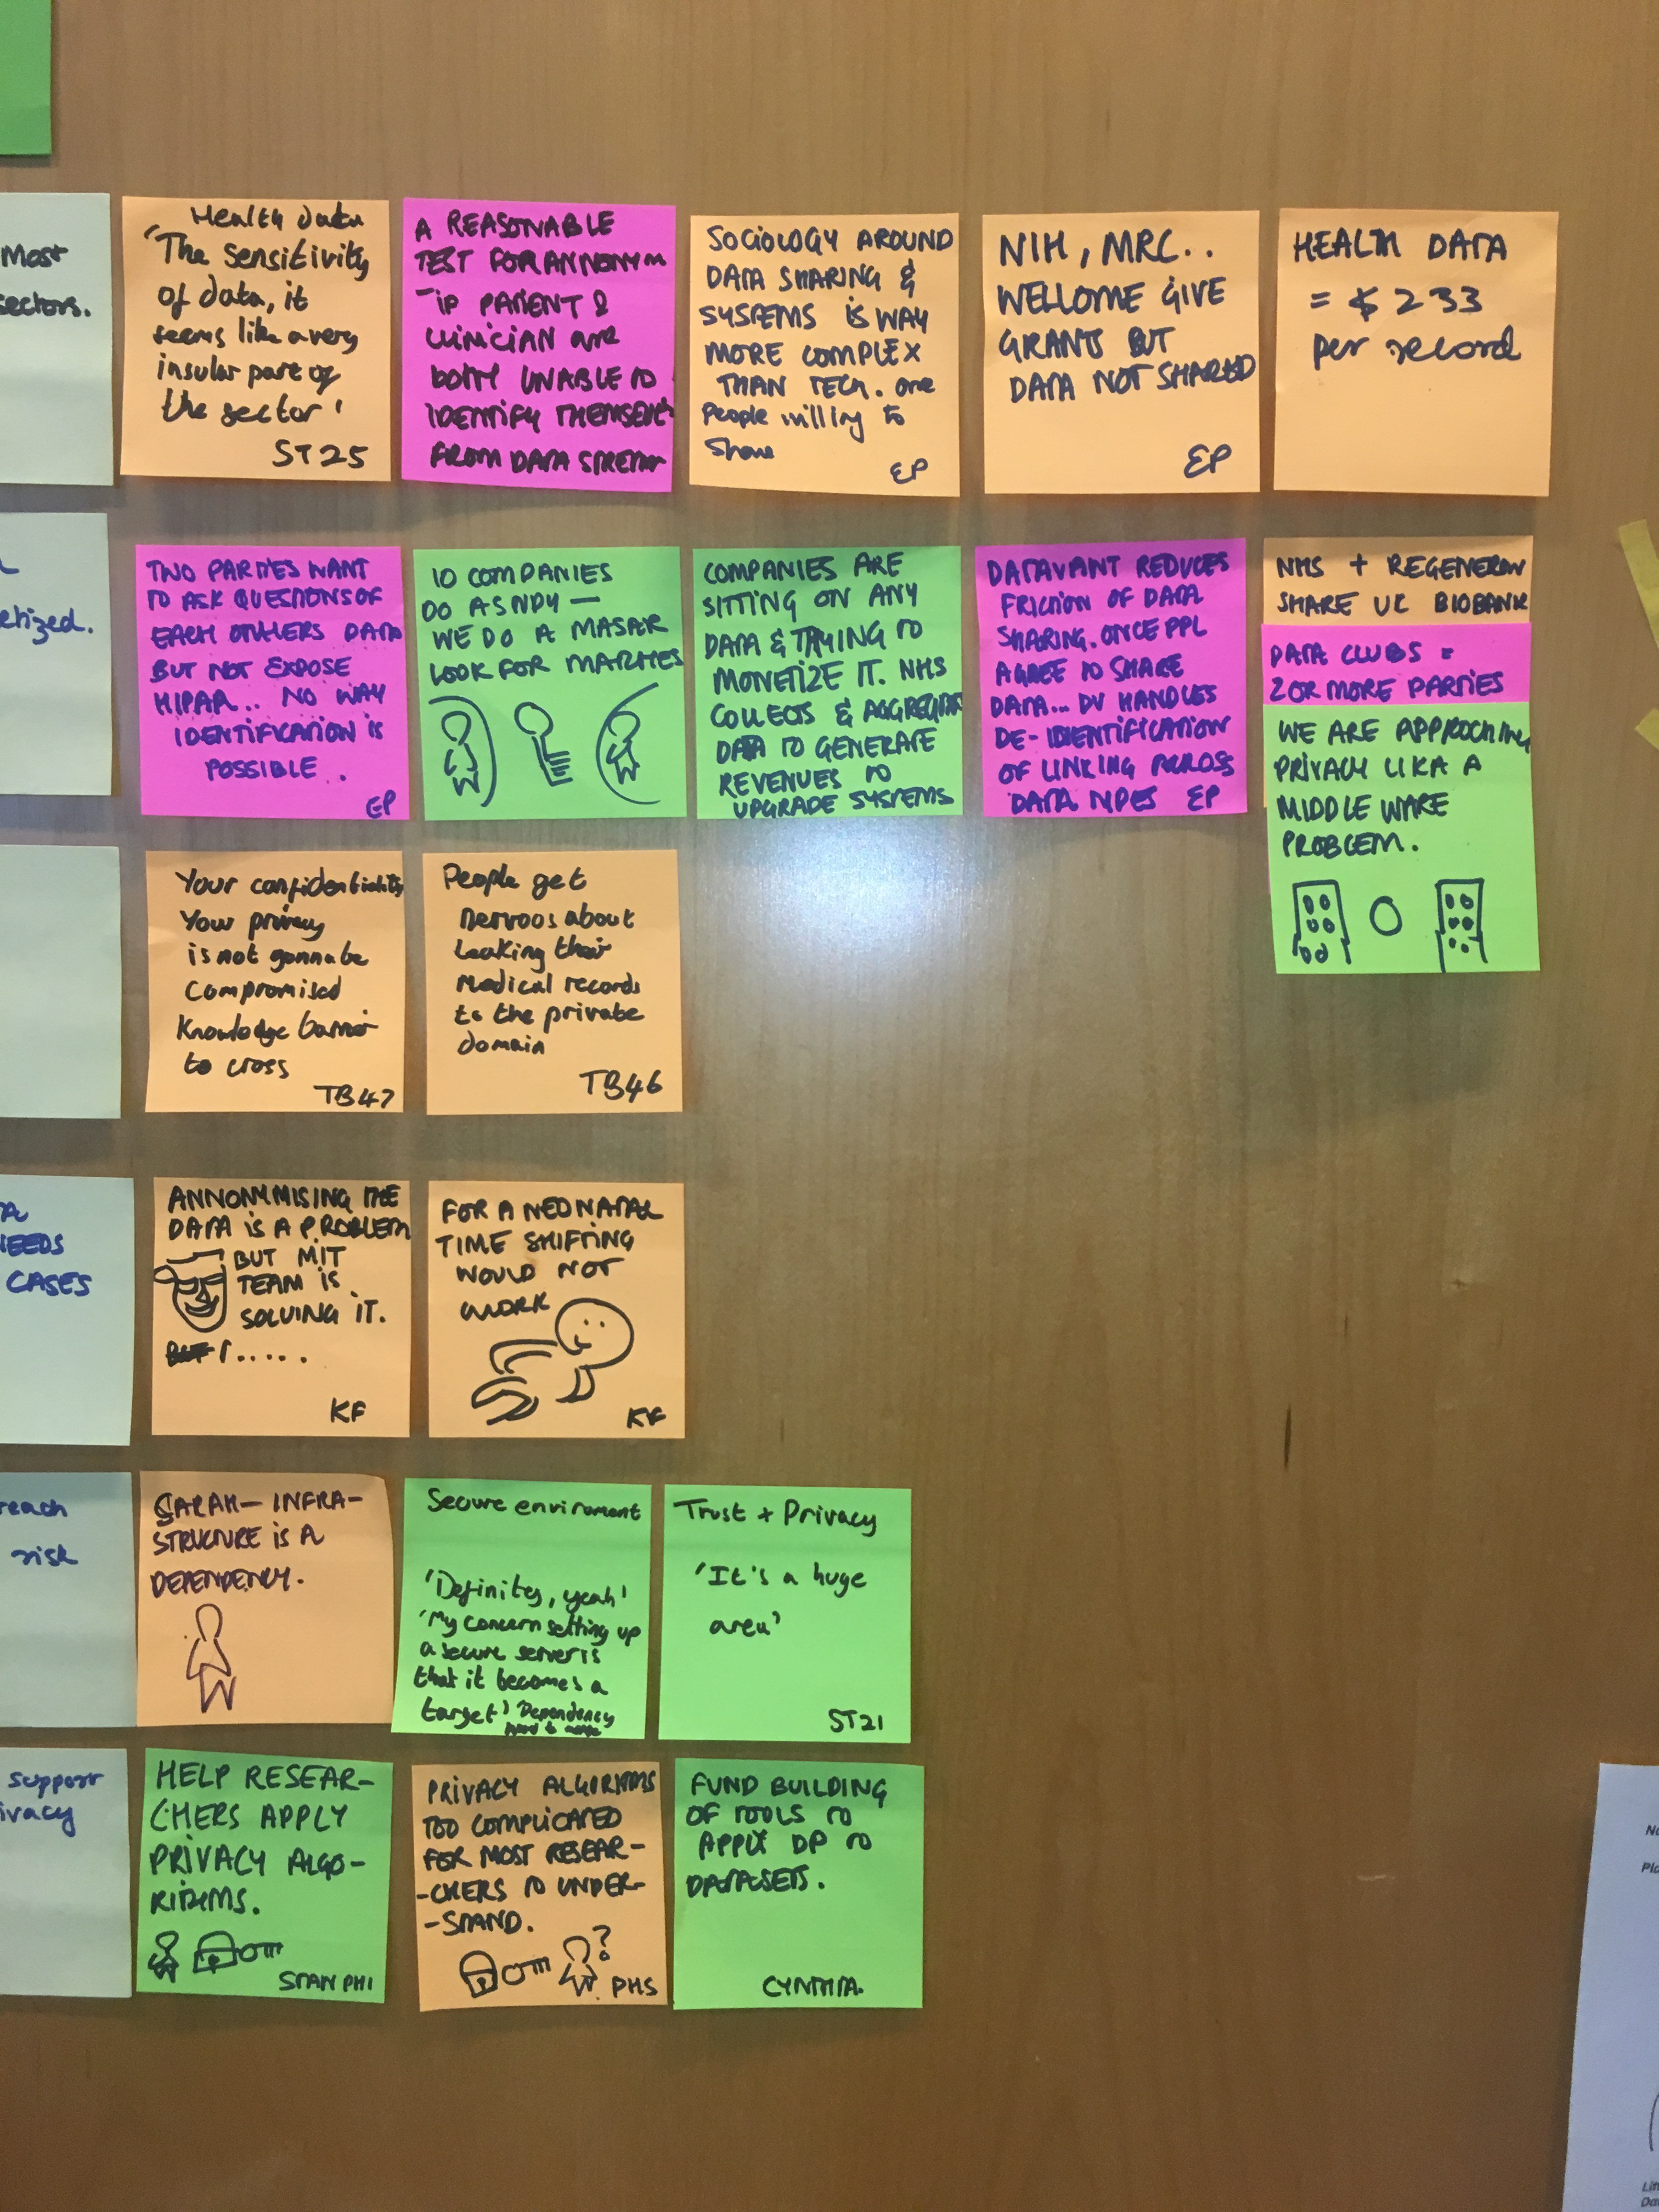 Most
sectors.
Health data
'The sensitivity
of data, it
seems like a very
insular part of
the sector'
ST25
A REASONABLE
TEST FOR ANNONYM
- IF PATIENT &
CLINICIAN are
BOTH UNABLE TO
IDENTIFY THEMSELVES
FROM DATA STREAM
SOCIOLOGY AROUND
DATA SHARING &
SYSTEMS IS WAY
MORE COMPLEX
THAN TECH. are
People willing to
Share
EP
NIH, MRC..
WELLOME GIVE
GRANTS BUT
DATA NOT SHARED
EP
HEALTH DATA
= $233
per record
etized.
TWO PARTIES WANT
TO ASK QUESTIONS OF
EACH OTHERS DATA
BUT NOT EXPOSE
HIPAR.. NO WAY
IDENTIFICATION IS
POSSIBLE..
EP
10 COMPANIES
DO A STUDY —
WE DO A MASTER
LOOK FOR MATCHES
COMPANIES ARE
SITTING ON ANY
DATA & TRYING TO
MONETIZE IT. NHS
COLLECTS & AGGREGATES
DATA TO GENERATE
REVENUES TO
UPGRADE SYSTEMS
DATAVANT REDUCES
FRICTION OF DATA
SHARING. ONCE PPL
AGREE TO SHARE
DATA... DV HANDLES
DE-IDENTIFICATION
OF LINKING ACROSS
DATA TYPES EP
NHS + REGENERON
SHARE UK BIOBANK
DATA CLUBS =
2 OR MORE PARTIES
WE ARE APPROCHING
PRIVACY LIKA A
MIDDLE WARE
PROBLEM.
Your confidentiality
Your privacy
is not gonna be
Compromised
Knowledge barrier
to cross
TB47
People get
nervous about
Leaking their
Medical records
to the private
domain
TB46
NEEDS
CASES
ANNONYMISING THE
DATA IS A PROBLEM
BUT MIT
TEAM IS
SOLVING IT.
KF
FOR A NEONATAL
TIME SHIFTING
WOULD NOT
WORK
KF
reach
risk
SARAH — INFRA-
STRUCTURE IS A
DEPENDENCY.
Secure enviroment
'Definitey, yeah'
'My concern setting up
a secure server is
that it becomes a
target' Dependency
Trust + Privacy
'It's a huge
area'
ST21
support
ivacy
HELP RESEAR-
CHERS APPLY
PRIVACY ALGO-
RITHMS.
STAN PHI
PRIVACY ALGORITHMS
TOO COMPLICATED
FOR MOST RESEAR-
-CHERS TO UNDER-
-STAND.
?
PHS
FUND BUILDING
OF TOOLS TO
APPLY DP TO
DATASETS.
CYNTHIA.